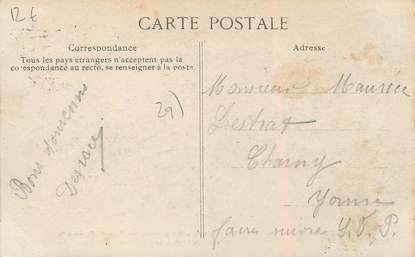 12€
CARTE POSTALE
Correspondance
Tous les pays étrangers n'acceptent pas la
correspondance au recto, se renseigner à la poste.
Adresse
29)
Bons
Monsieur Maurice
Lestrat
Charny
Yonne
faire suivre S. V. P.